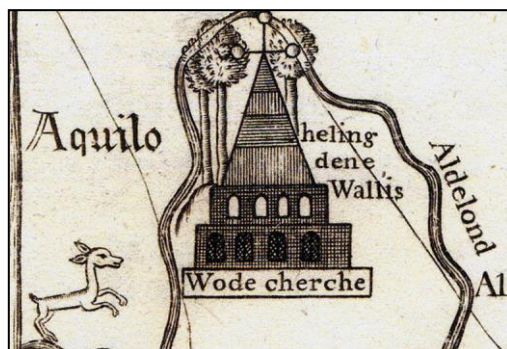 Aquilo
heling
dene
Wallis
Aldelond
Al
Wode cherche